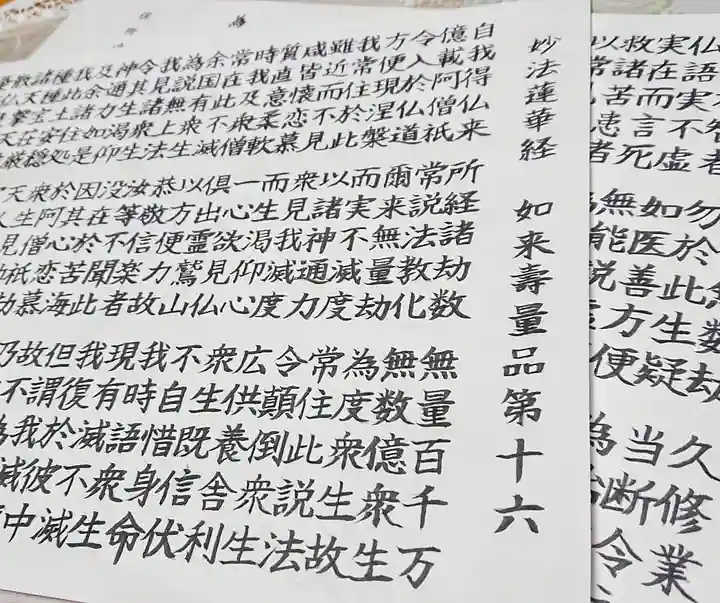 妙法蓮華経 如来壽量品第十六
自我得仏来 所経諸劫数 無量百千万
億載阿僧祇 常説法教化 無数億衆生
令入於仏道 爾来無量劫 為度衆生故
方便現涅槃 而実不滅度 常住此説法
我常住於此 以諸神通力 令顛倒衆生
雖近而不見 衆見我滅度 広供養舎利
咸皆懐恋慕 而生渇仰心 衆生既信伏
質直意柔軟 一心欲見仏 不自惜身命
時我及衆僧 倶出霊鷲山 我時語衆生
常在此不滅 以方便力故 現有滅不滅
余国有衆生 恭敬信楽者 我復於彼中
為説無上法 汝等不聞此 但謂我滅
我見諸衆生 没在於苦海 故不為
令其生渇仰 因其心恋慕 乃
神通力如是 於阿僧祇劫
及余諸住処 衆生見
我此土安穏 天
種種宝荘厳
諸天撃天
数劫
久修業
者 勿於此生疑 当断令
仏語実不虚 如医善方便 為
実在而言死 無能説
救諸苦患者
以常